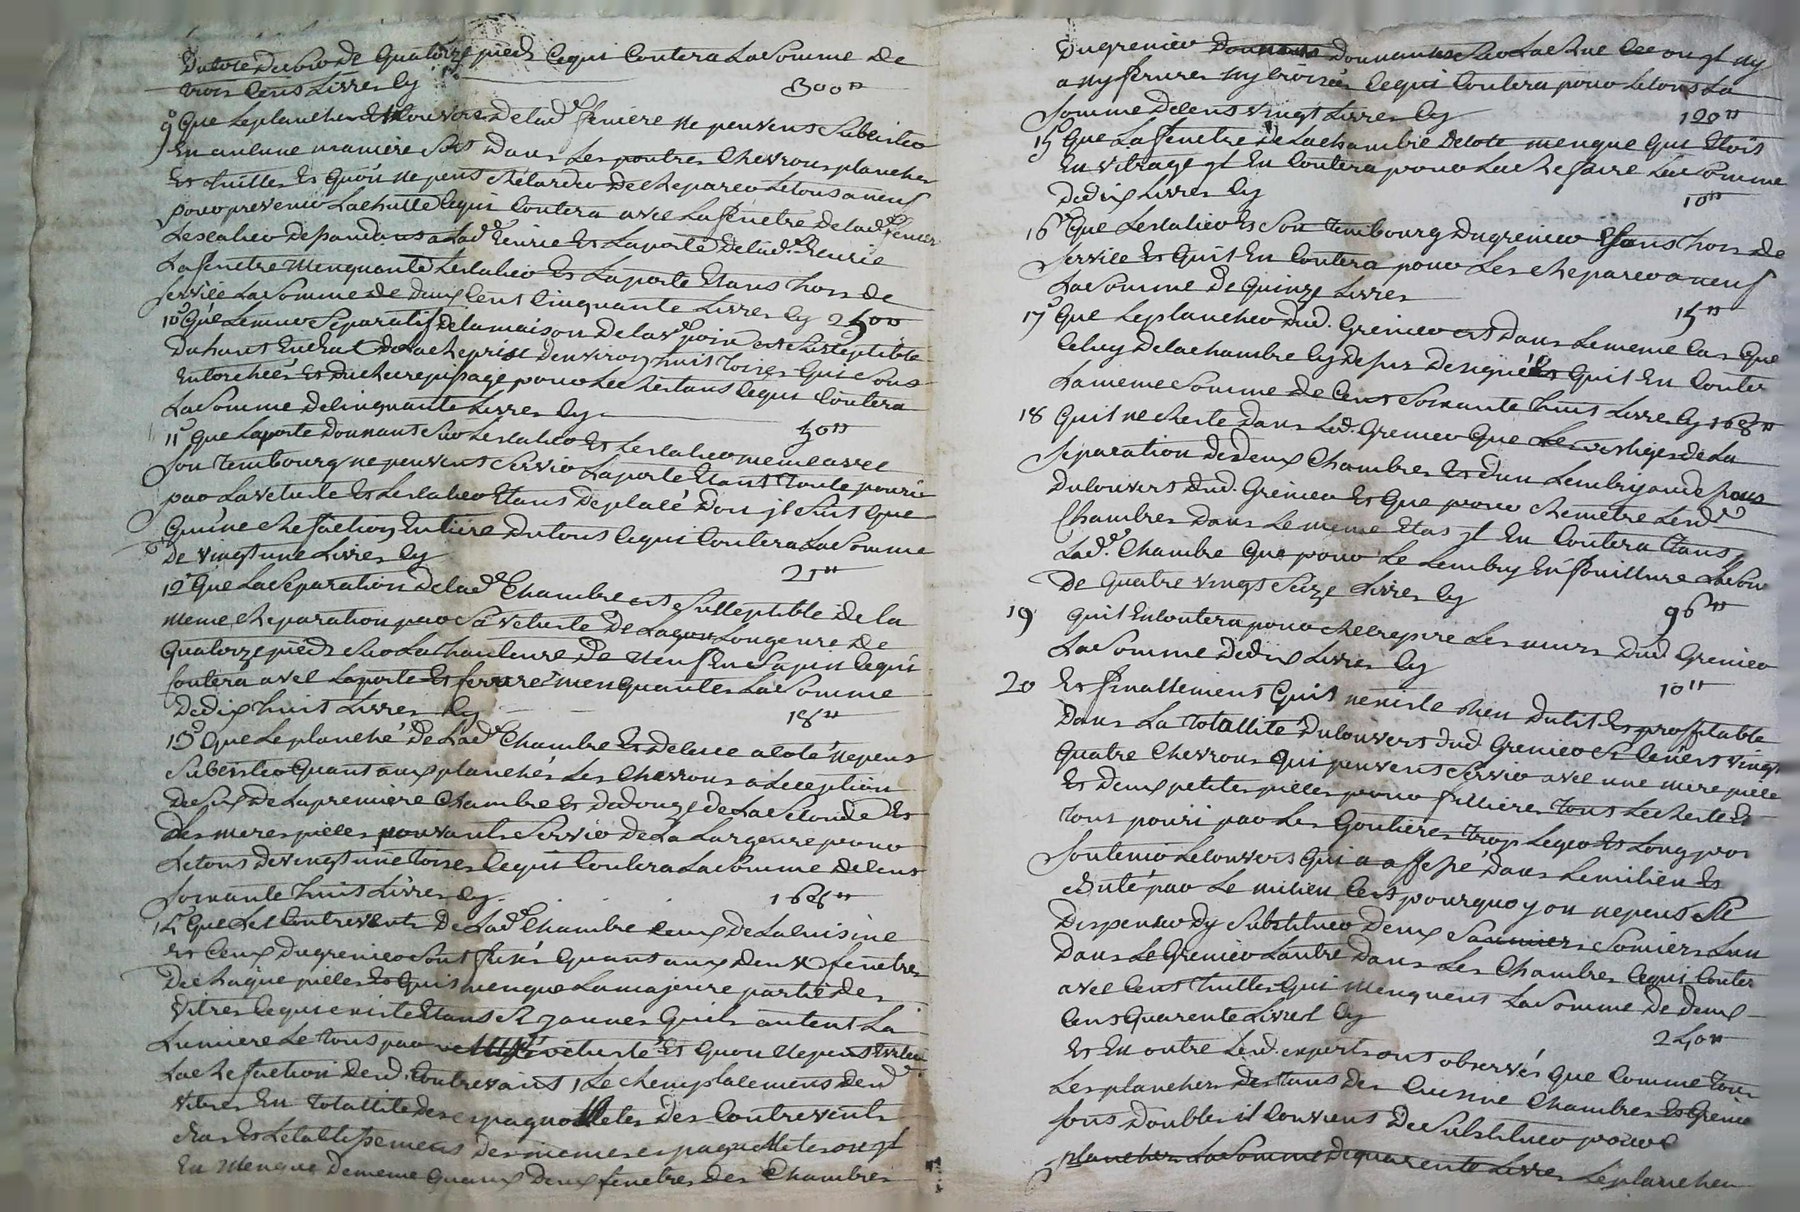 Du toit de Bois de Quatorze pieds Cequi Coutera La Somme de
trois Cens Livres Cy 300"
9° Que Le plancher Et Couvert De lad.e feniere Ne peuvent Subcister
En aucune maniere Soit Dans Les poutres Chevrons plancher
Et thuilles Et Quon ne peut Retarder De Reparer Letous a neuf
pour prevenir La chutte Cequi Contera avec La fenetre De lad.e feniere
Lescalier dependant a Lad.e Ecurie Et La porte De lad.e Ecurie
La fenetre Menquante Lescalier Et La porte Etans hors de
Service La Somme de Deux Cent Cinquante Livres Cy 250"
10° Que Le mur Separatif De la maison De lad.e est Susteptible
Du haut En bas De la Reprise Denviron huit toises Qui Sont
Entorchées Et Du Recrepissage pour Le Restans Cequi Contera
La Somme De Cinquante Livres Cy 50"
11° Que La porte Donnant Sur Lescalier Et Lescalier meme avec
Son tembourg ne peuvent Servir La porte Etant toute pourie
par La vetuste Et Lescalier Etans Deplacé Dou il Suit Que
Quune Refaction Entiere Dutous Cequi Contera La Somme
De vingt une Livres Cy 21"
12° Que La Separation De lad.e Chambre est Susteptible de la
meme Reparation par Sa vetuste De La Longeure de
Quatorze pieds Sur La hauteure De Neuf En Sapin Cequi
Contera avec La porte Et ferrure menquantes La Somme
De dix huit Livres Cy 18"
13° Que Le planché De Lad.e Chambre Et De Luce a Coté Nepeut
Subcister Quant aux planchés Les Chevrons a Leception
De Six De La premiere Chambre Et De douze de La Seconde Et
Des meres pieces pouvant Servir De La Largeure pour
Letous De vingt une toises Cequi Contera La Somme De Cent
Soixante huit Livres Cy 168"
14° Que Les Contrevents De Lad.e Chambre Ceux De La Cuisine
Et Ceux Du grenier Sont Usés Quant aux Deux fenetres
De chaque pieces Et Quil menque La majeure partie des
Vitres Cequi existe Etans Si jaunes Quils autent La
Lumiere Le tous par vetusté Et Quon Nepeut Eviter
La Refaction Desd. Contrevents, Le Remplacement Desd.
Vitres En totallité Des espagnollettes Des Contrevents
Et Letablissement Des memes espagnollettes
En Menque De meme Quaux Deux fenetres Des Chambres
Du grenier Donnantes Sur La Rue Ou il Ny
a Ny ferrures Ny Croisées Cequi Contera pour Letous La
Somme De Cent vingt Livres Cy 120"
15° Que La fenetre De La Chambre De Coté menque Qui Etoit
En vitrage il En Contera pour La Refaire La Somme
De dix Livres Cy 10"
16° Que Lescalier Et Son tembourg Du grenier Etans hors de
Service Et Quil En Contera pour Les Reparer a neuf
La Somme De Quinze Livres 15"
17° Que Le plancher Dud. Grenier est Dans Le meme Cas Que
Celuy De La Chambre Cy De Sus Designée Quil En Couter
La meme Somme de Cent Soixante huit Livre Cy 168"
18 Quil ne Reste Dans Led. Grenier Que Les vestiges De La
Separation De Deux Chambres Et Dun Lembry au De Sous
Du Couvert Dud. Grenier Et Que pour Remetre Lesd.
Chambres Dans Le meme Etat il En Contera tans
Lad.e Chambre Que pour Le Lembry En fouillure La Som
De Quatre vingt Seize Livres Cy 96"
19 Quil En Contera pour Recrepire Les murs Dud Grenier
La Somme De dix Livres Cy 10"
20 Et finallement Quil nexiste Rien Dutil Et profitable
Dans La totallité Du Couvert Dud Grenier Si Cenest vingt
Quatre Chevrons Qui peuvent Servir avec une mere piece
Et Deux petites pieces pour filliere tous Le Reste Est
tous pouri par Les Goutieres trop Leger Et Long pour
Soutenir Le Couvert Qui a affesé Dans Le milieu Et
Ruté par Le milieu Cest pourquoy on nepeut Se
Dispenser Dy Substituer Deux Somiers Lun
Dans Le Grenier Lautre Dans Les Chambres Cequi Couter
avec Cent thuilles Qui Menquent La Somme De Deux
Cent Quarente Livres Cy 240"
Et En outre Lesd. experts ont observés Que Comme tous
Les planchers Des Cuisine Chambres Et Grenier
Sont Doubles il Convient De Substituer pour
planchers La Somme De quarente Livres Le plancher